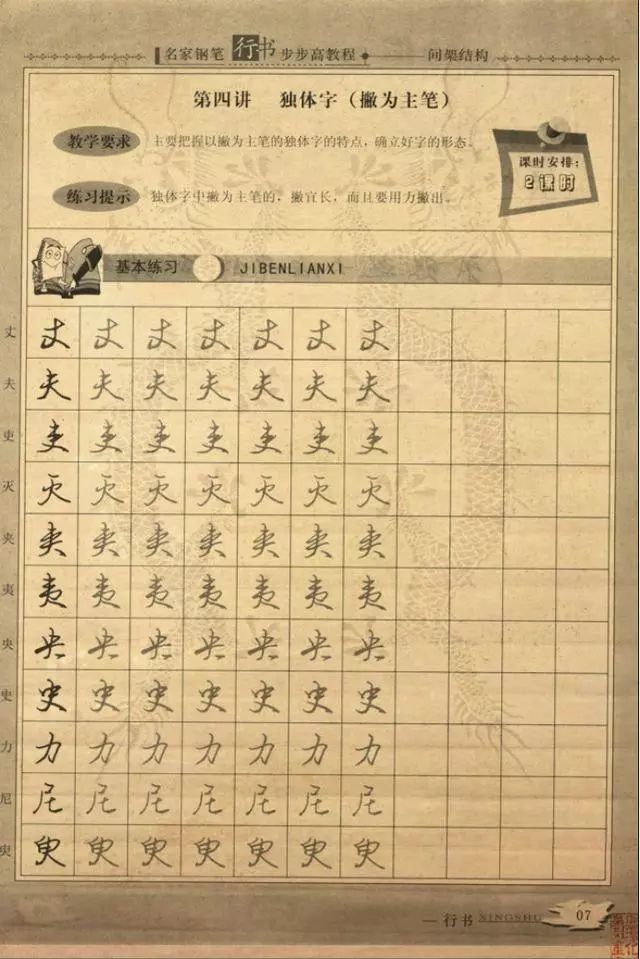 名家钢笔行书步步高教程 间架结构
第四讲 独体字（撇为主笔）
教学要求 主要把握以撇为主笔的独体字的特点，确立好字的形态。
课时安排：
2课时
练习提示 独体字中撇为主笔的，撇宜长，而且要用力撇出。
基本练习 JIBENLIANXI
丈 丈 丈 丈 丈 丈 丈 丈
夫 夫 夫 夫 夫 夫 夫 夫
吏 吏 吏 吏 吏 吏 吏 吏
灭 灭 灭 灭 灭 灭 灭 灭
夹 夹 夹 夹 夹 夹 夹 夹
夷 夷 夷 夷 夷 夷 夷 夷
央 央 央 央 央 央 央 央
史 史 史 史 史 史 史 史
力 力 力 力 力 力 力 力
尼 尼 尼 尼 尼 尼 尼 尼
臾 臾 臾 臾 臾 臾 臾 臾
—行书 XINGSHU 07